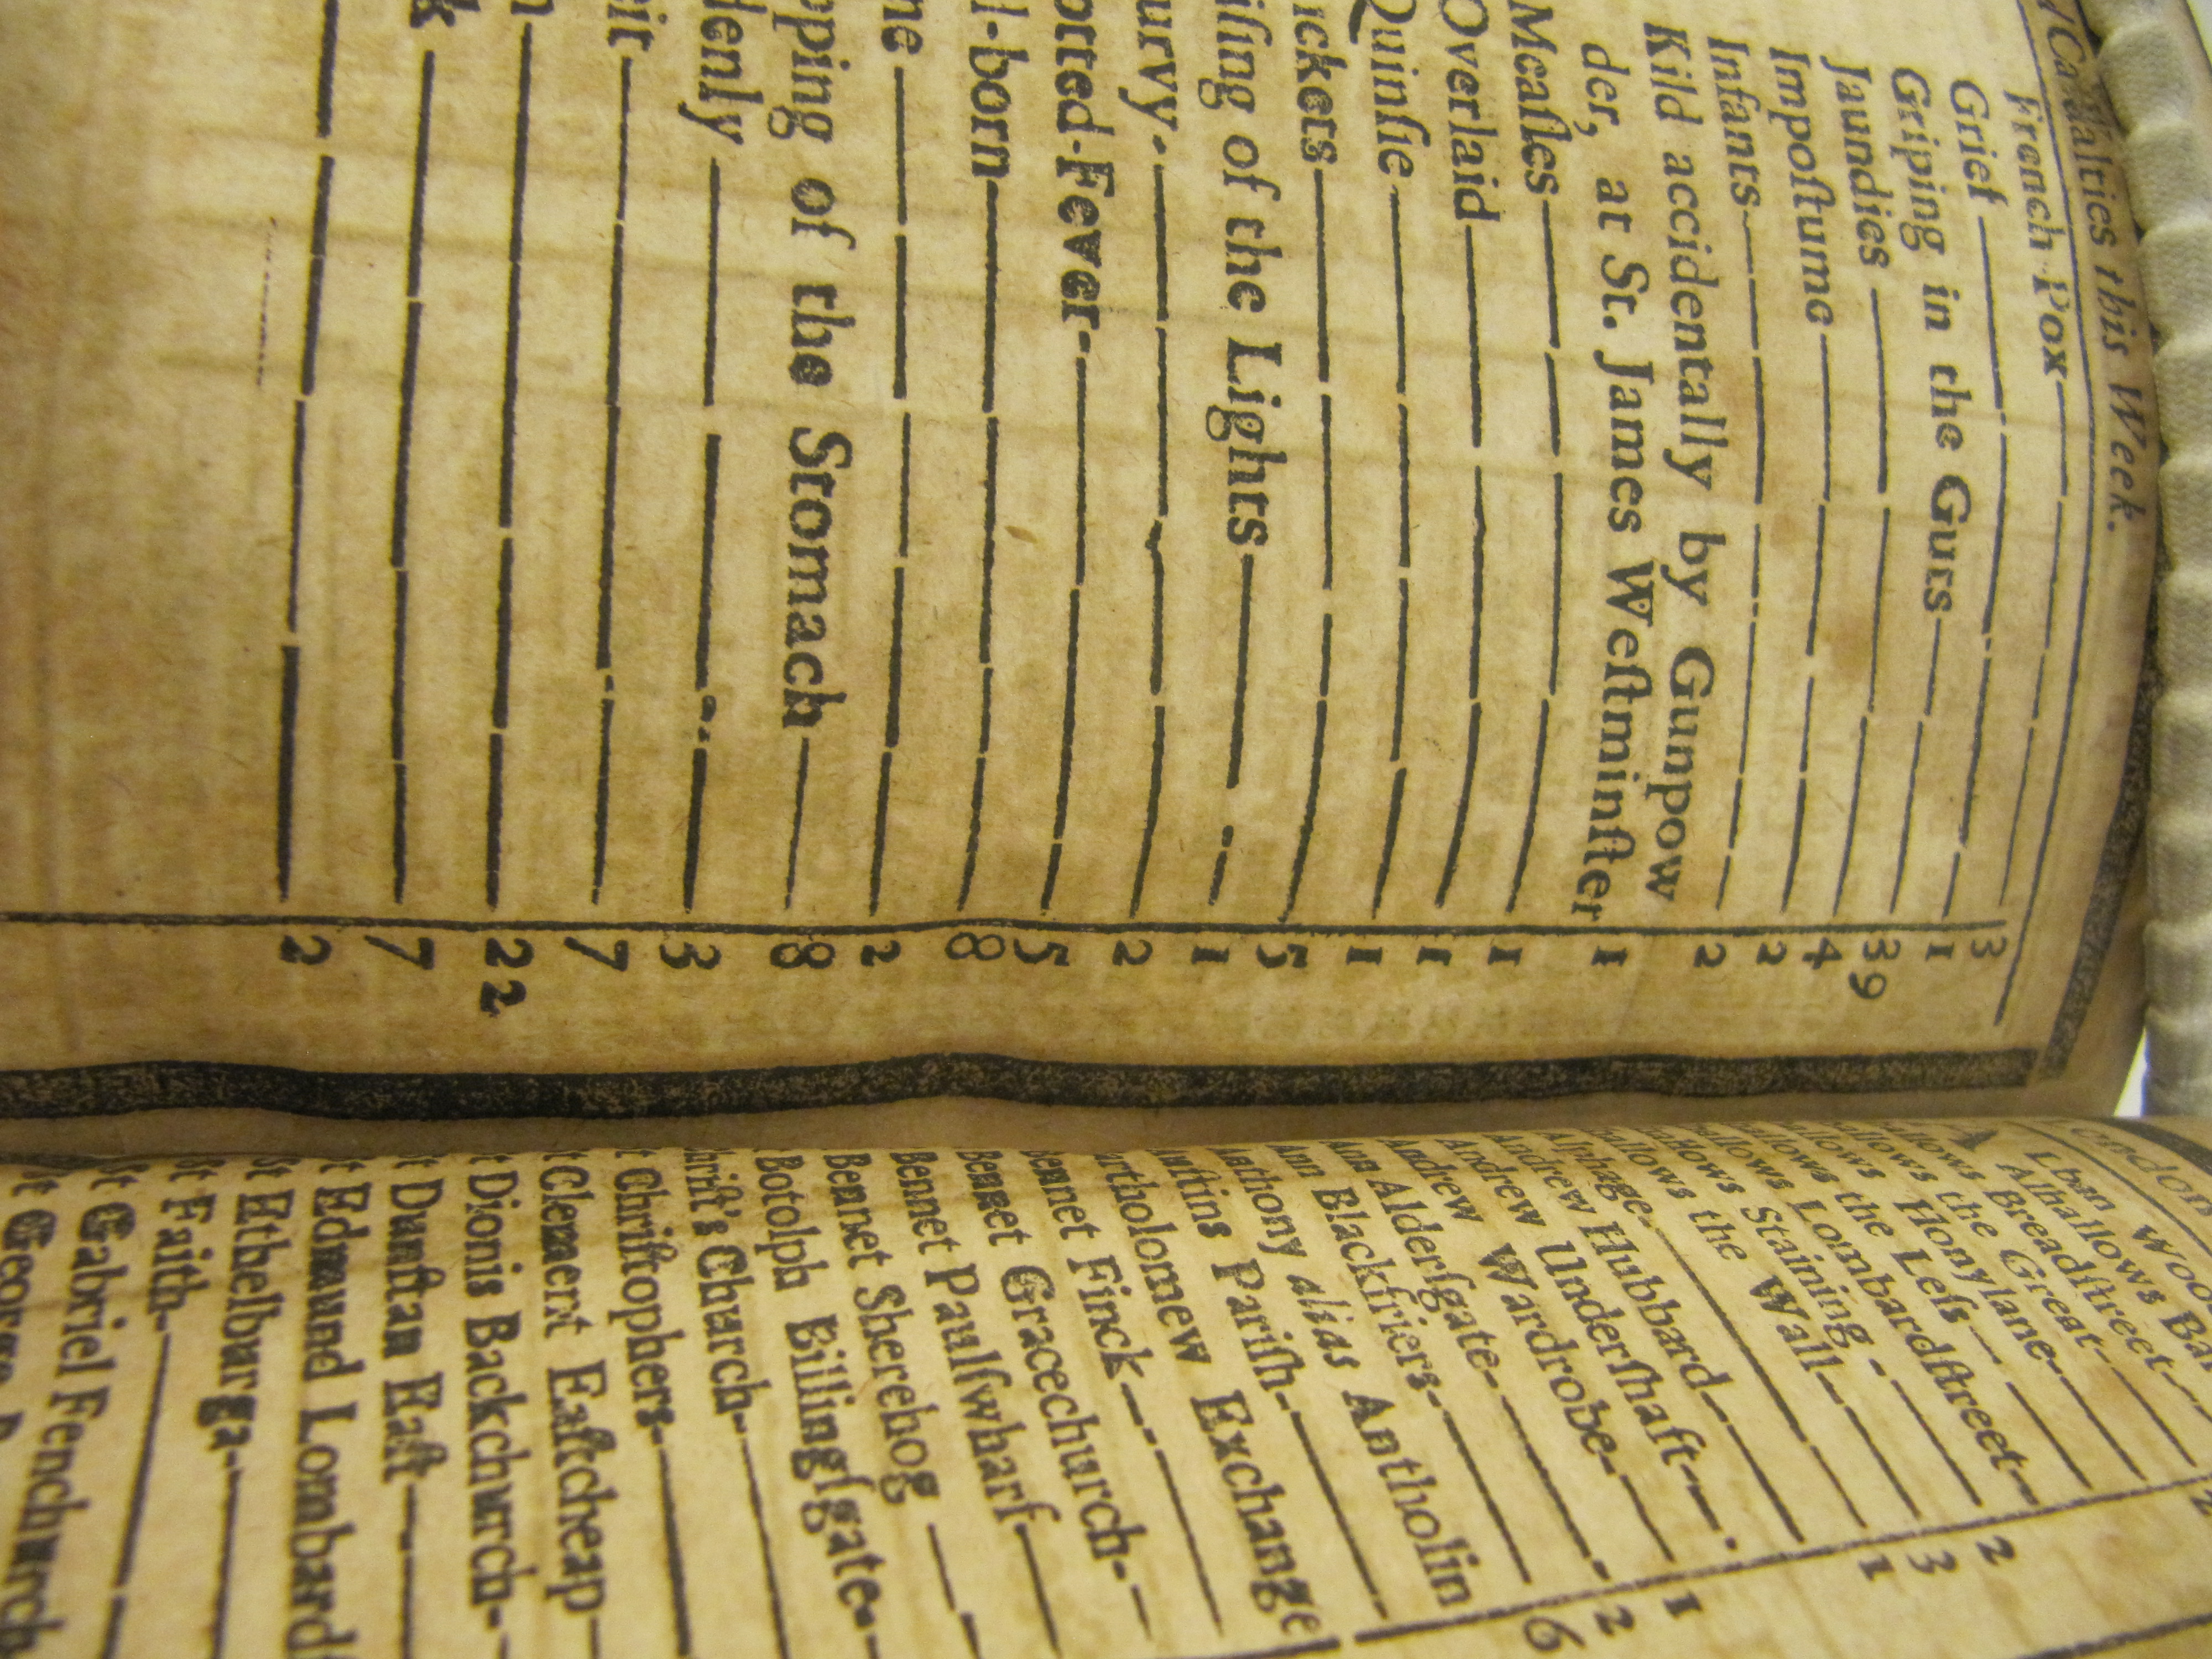 Casualties this Week.
French Pox 3
Grief 1
Griping in the Guts 39
Jaundies 4
Impostume 2
Infants 2
Kild accidentally by Gunpow
der, at St. James Westminster 1
Measles 1
Overlaid 1
Quinsie 1
ickets 5
ising of the Lights 1
urvy 2
otted-Fever 5
l-born 8
ne 2
pping of the Stomach 8
denly 3
it 7
n 22
k 7
2
Alhallows Breadstreet
Alhallows the Great
allows Honylane
allows the Less
allows Lombardstreet 2
allows Staining 3
allows the Wall 1
Alphage
Andrew Hubbard
Andrew Undershaft 1
Andrew Wardrobe 2
Ann Aldersgate
Ann Blackfriers 6
Anthony alias Antholin
Austins Parish
artholomew Exchange
Bennet Finck
Bennet Gracechurch
Bennet Paulswharf
Bennet Sherehog
Botolph Billingsgate
hrist's Church
t Christophers
t Clement Eastcheap
t Dionis Backchurch
t Dunstan East
t Edmund Lombard
St Ethelburga
St Faith
St Gabriel Fenchurch